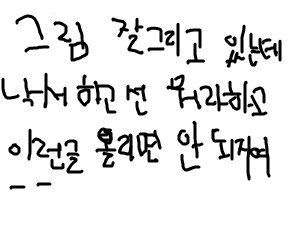 그림 잘그리고 있는데
낙서하고선 뭐라하고
이런글 올리면 안 되지여
--